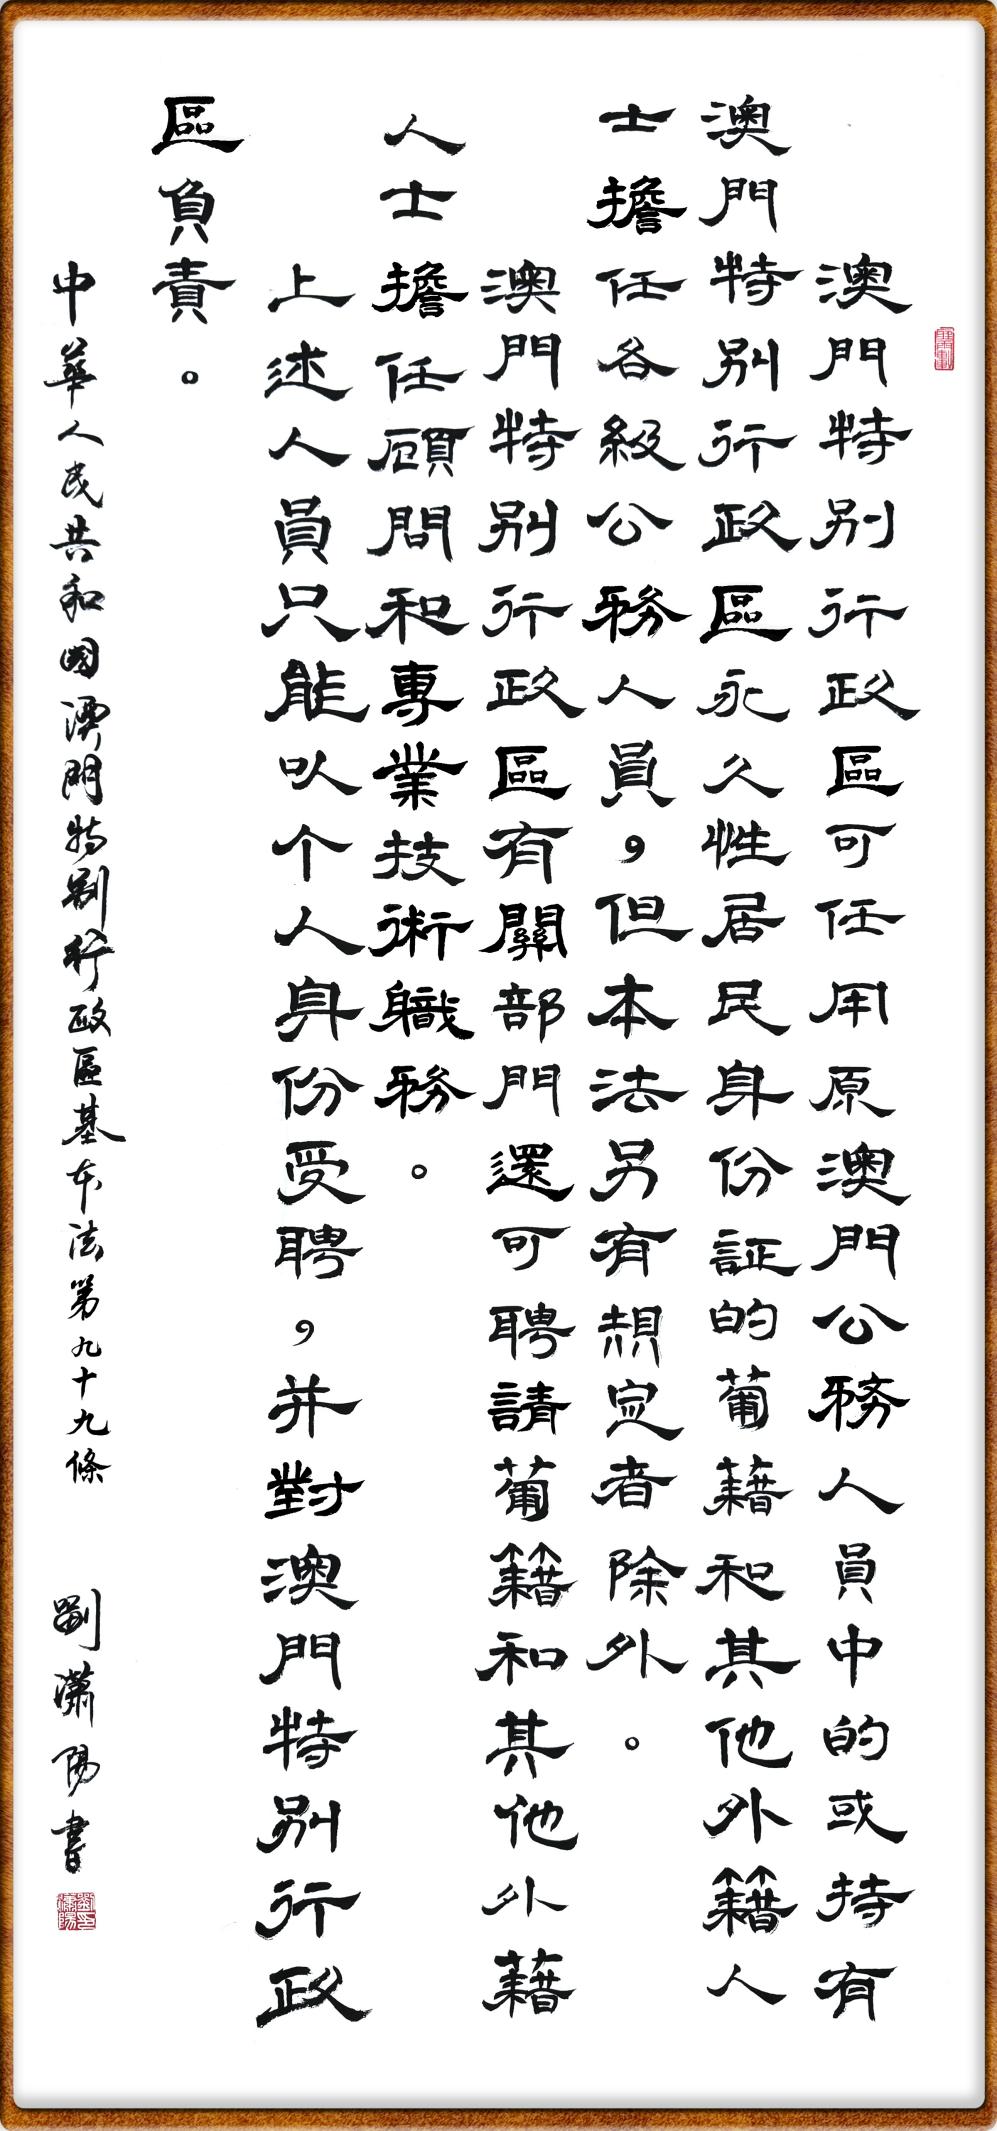 澳門特別行政區可任用原澳門公務人員中的或持有
澳門特別行政區永久性居民身份証的葡籍和其他外籍人
士擔任各級公務人員，但本法另有規定者除外。
澳門特別行政區有關部門還可聘請葡籍和其他外籍
人士擔任顧問和專業技術職務。
上述人員只能以个人身份受聘，并對澳門特別行政
區負責。
中華人民共和國澳門特別行政區基本法第九十九條
劉瀟陽書